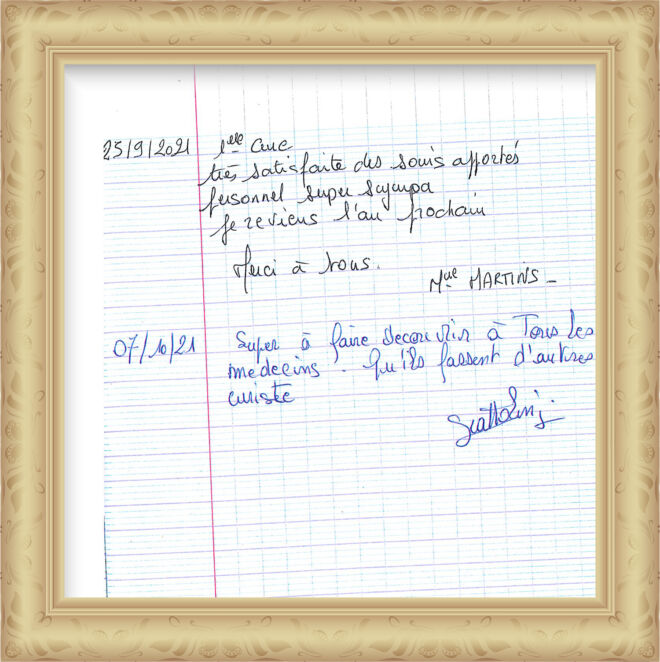 25/9/2021 1ère Cure
très satisfaite des soins apportés
personnel super sympa
je reviens l'an prochain
Merci à vous.
Mme MARTINS_
07/10/21 Super à faire decouvrir à Tous les
medecins. Qu'ils fassent d'autres
curiste